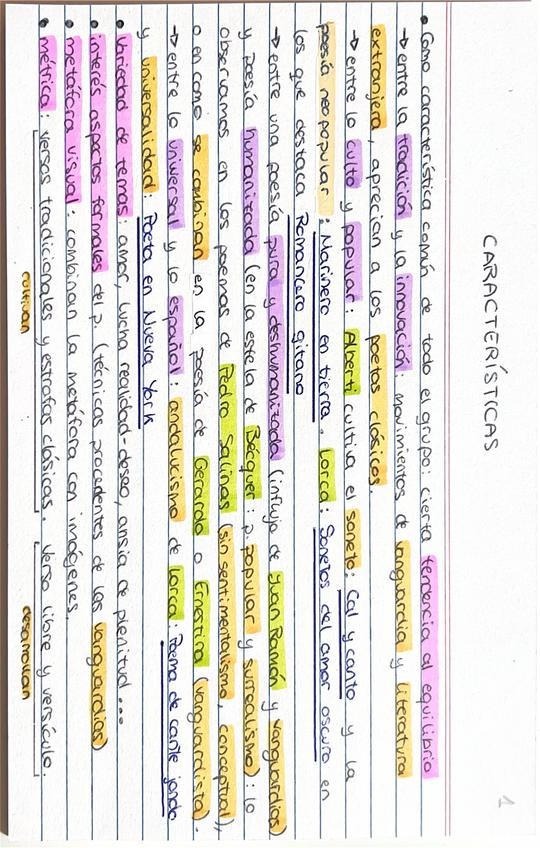 1
CARACTERÍSTICAS
• Como característica común de todo el grupo: cierta tendencia al equilibrio
→ entre la tradición y la innovación: movimientos de vanguardia y literatura
extranjera, aprecian a los poetas clásicos.
→ entre lo culto y popular: Alberti cultiva el soneto: Cal y canto y la
poesía neopopular: Marinero en tierra. Lorca: Sonetos del amor oscuro en
los que destaca Romancero gitano
→ entre una poesía pura y deshumanizada (influjo de Juan Ramón y vanguardias)
y poesía humanizada (en la estela de Bécquer: p. popular y surrealismo): lo
observamos en los poemas de Pedro Salinas (sin sentimentalismo, conceptual),
o en como se combinan en la poesía de Gerardo o Ernestina (vanguardista).
→ entre lo universal y lo español: andalucismo de Lorca: Poema de cante jondo
y universalidad: Poeta en Nueva York
• Variedad de temas: amor, lucha realidad-deseo, ansia de plenitud...
• interés aspectos formales del p. (técnicas procedentes de las vanguardias)
• metáfora visual: combinan la metáfora con imágenes.
• métrica: versos tradicionales y estrofas clásicas. Verso libre y versículo.
cultivan desarrollan